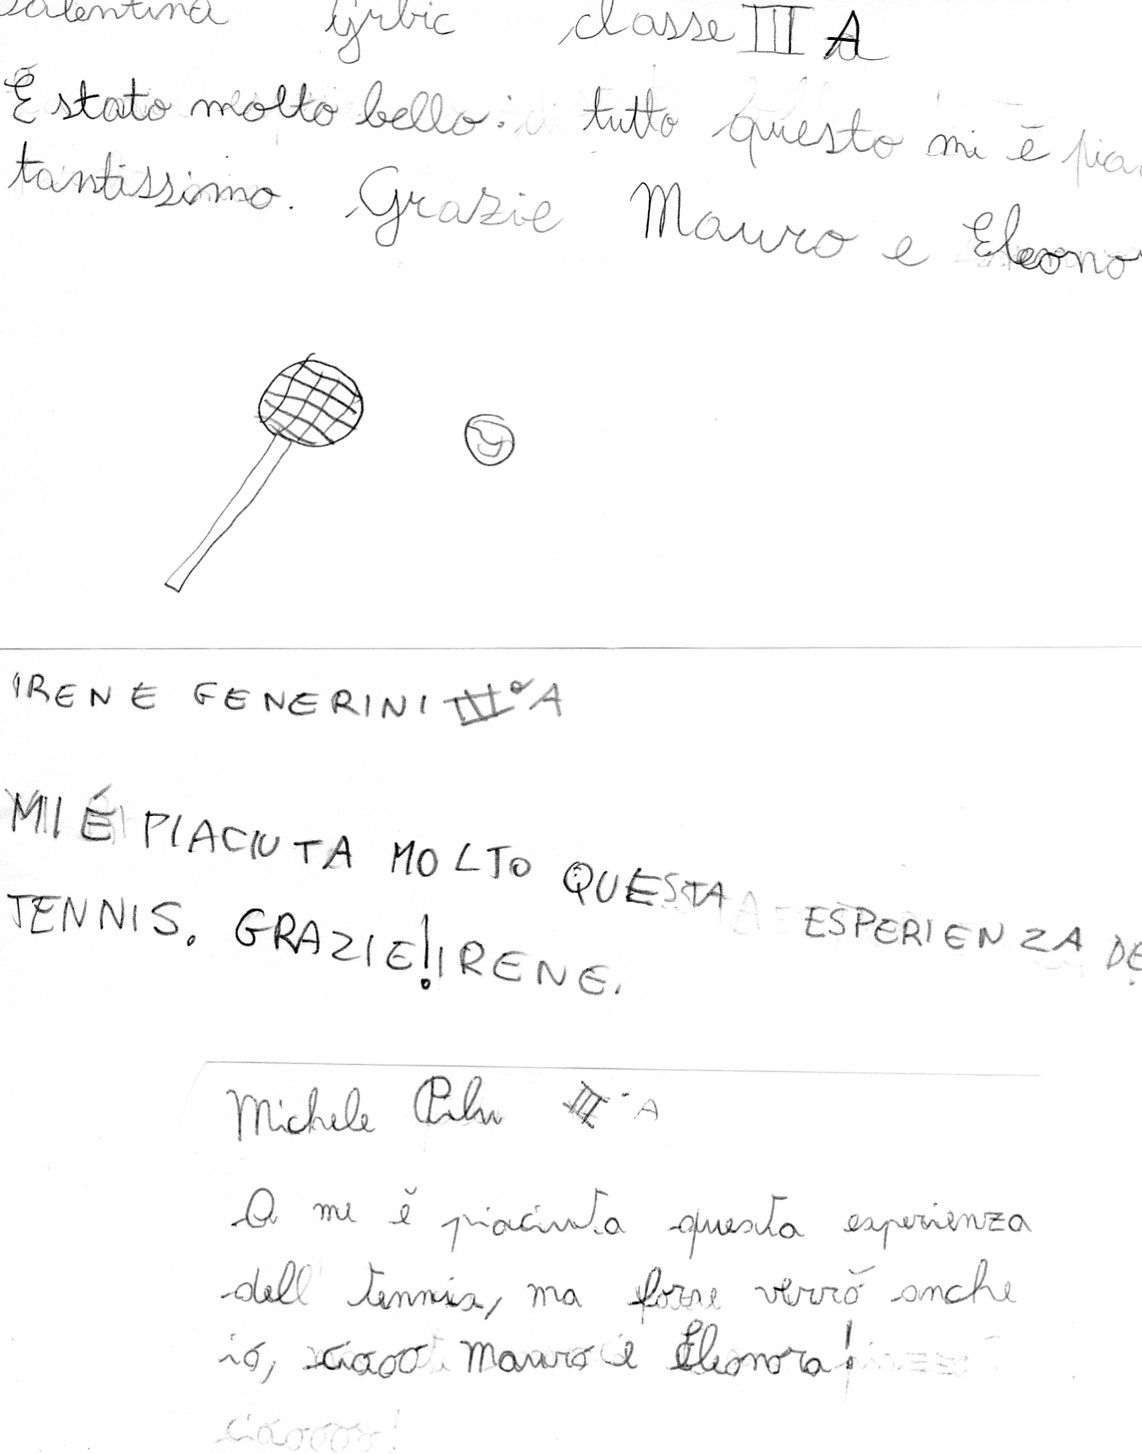 Valentina Grbic classe III A
É stato molto bello: tutto questo mi è pia
tantissimo. Grazie Mauro e Eleono
IRENE GENERINI III° A
MI É PIACIUTA MOLTO QUESTA ESPERIENZA DE
TENNIS. GRAZIE! IRENE.
Michele III° A
A me è piaciuta questa esperienza
dell tennis, ma forse verrò anche
io, ciaooo Mauro e Eleonora!
ciaoooo!